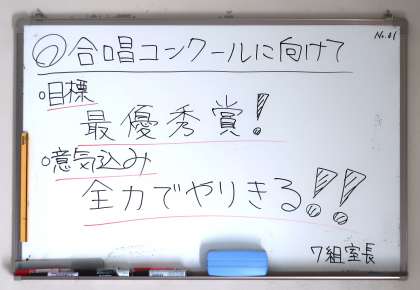 No.01
◎合唱コンクールに向けて
○目標
最優秀賞!
○意気込み
全力でやりきる!!
7組室長